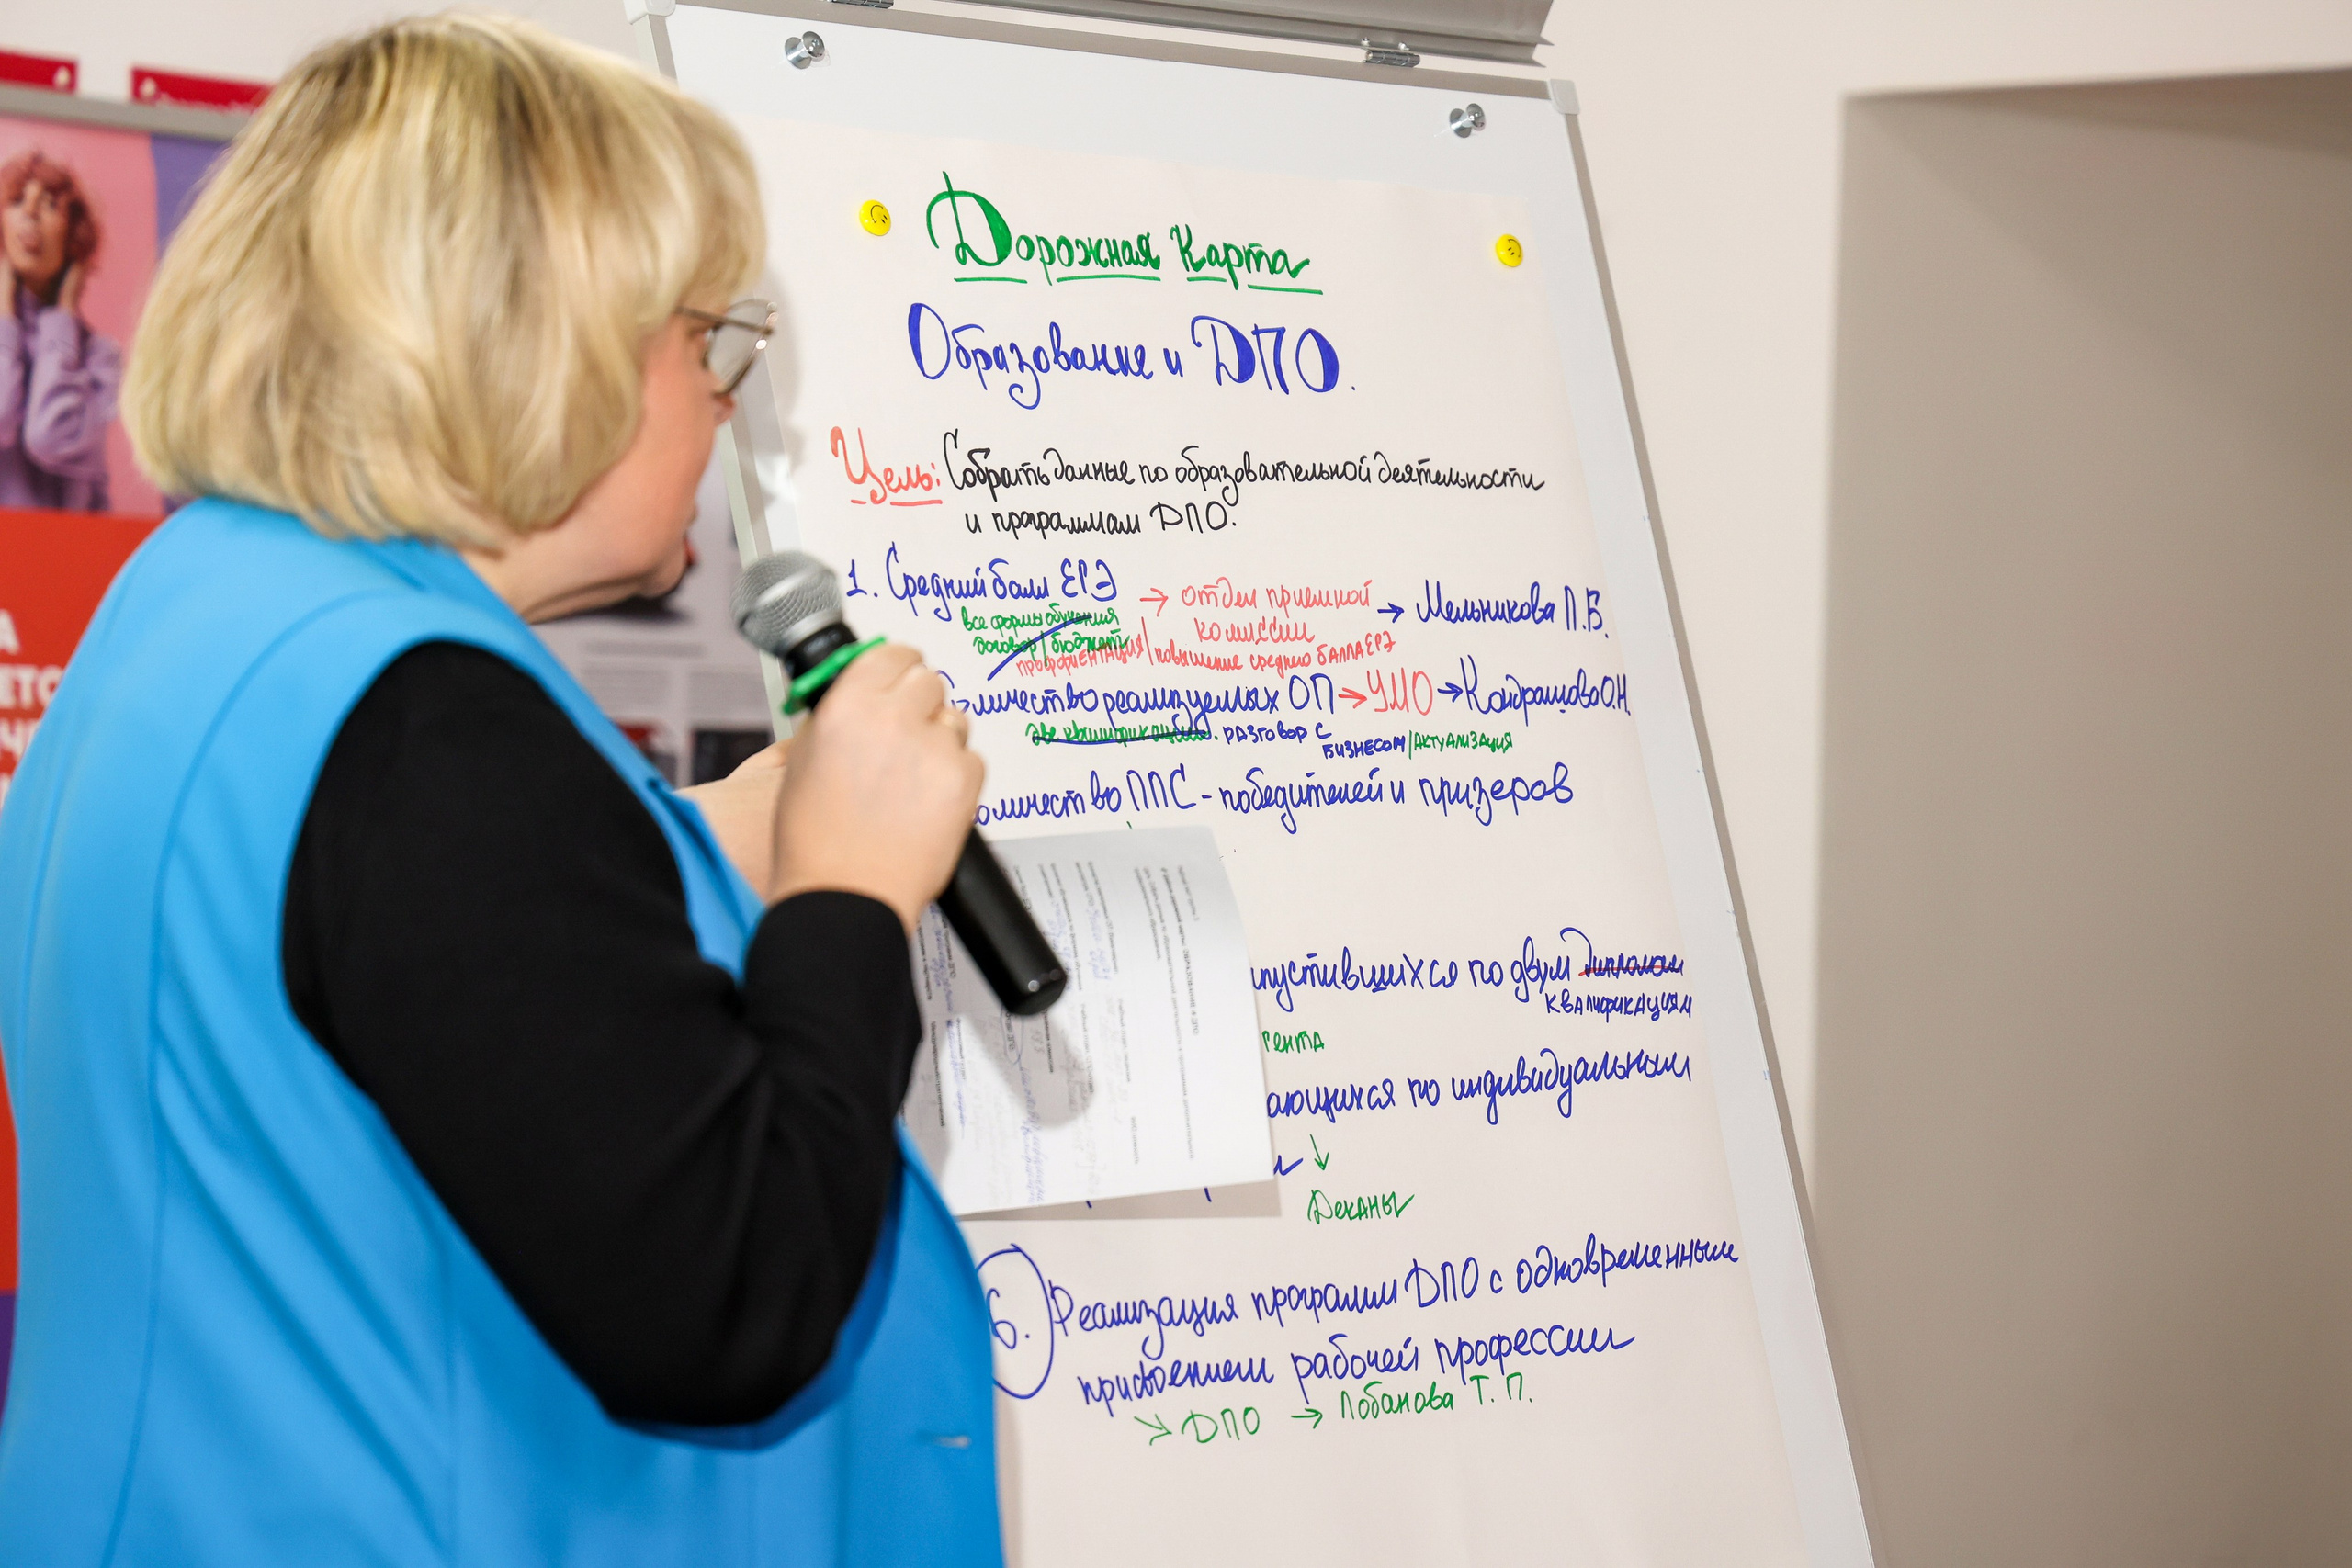 Дорожная Карта
Образование и ДПО.
Цель: Собрать данные по образовательной деятельности
и программам ДПО.
1. Средний балл ЕГЭ → отдел приемной комиссии → Мельникова П.Б.
все формы обучения
договор/бюджет
профориентация/повышение среднего БАЛЛА ЕГЭ
личество реализуемых ОП → УМО → Кондрашова О.Н.
две квалификации. разговор с
бизнесом/актуализация
оличество ППС - победителей и призеров
пустившихся по двум дипломам
квалификациям
гента
ающихся по индивидуальным
↓
Деканы
6. Реализация программ ДПО с одновременным
присвоением рабочей профессии
↘ ДПО → Лобанова Т. П.